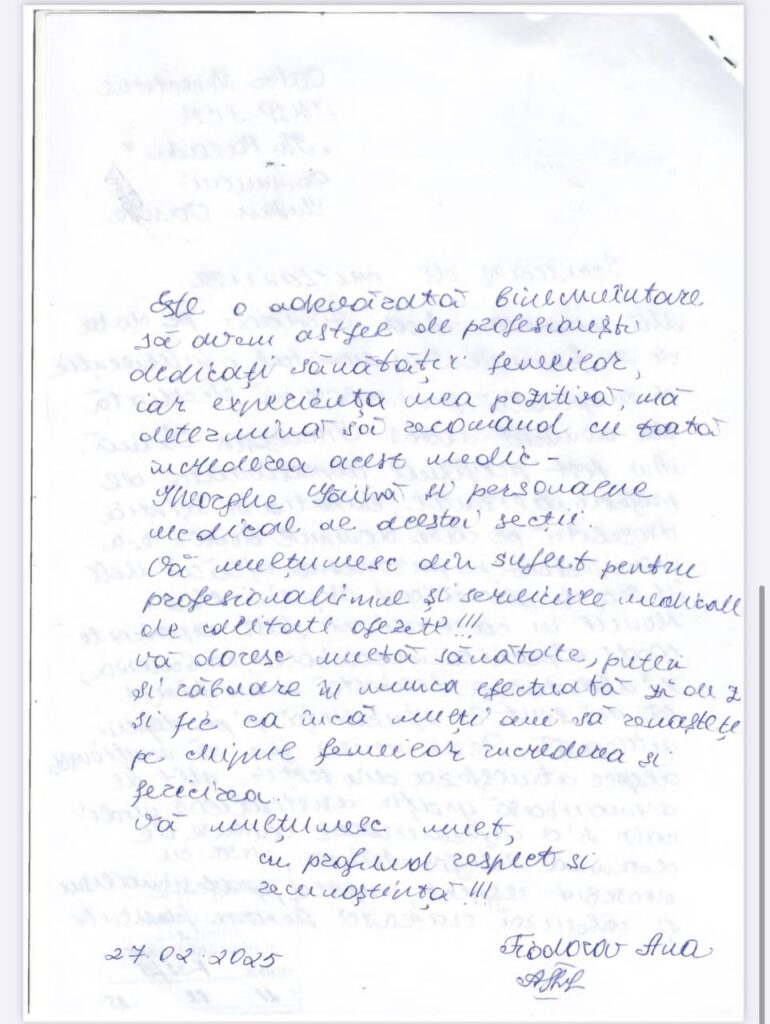 Este o adevărată binecuvîntare
să avem astfel de profesioniști
dedicați sănătății femeilor,
iar experiența mea pozitivă, mă
determină să recomand cu toată
încrederea acest medic -
Gheorghe și personalul
medical de acestei secții.
Vă mulțumesc din suflet pentru
profesionalismul și serviciile medicale
de calitate oferite!!!
Vă doresc multă sănătate, puteri
și răbdare în munca efectuată zi de zi
și fie ca încă mulți ani să renașteți
pe chipul femeilor încrederea și
fericirea.
Vă mulțumesc mult,
cu profund respect și
recunoștință!!!
27.02.2025
Fiodorov Ana